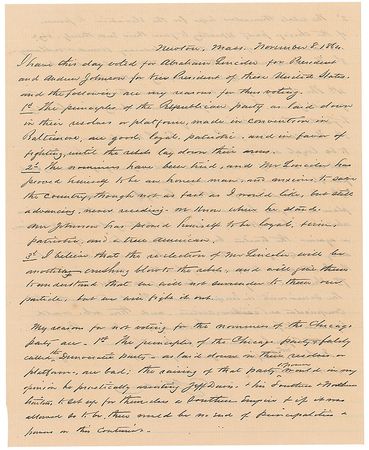 Newton, Mass. November 8. 1864.
I have this day voted for Abraham Lincoln for President
and Andrew Johnson for Vice President of these United States.
and the following are my reasons for thus voting.
1st The principles of the Republican party as laid down
in their resolves or platform, made in convention in
Baltimore, are good, loyal, patriotic, and in favor of
fighting, until the rebels lay down their arms.
2d The nominees have been tried, and Mr Lincoln has
proved himself to be an honest man, and anxious to save
the country, though not as fast as I would like, but still
advancing, never receding. We know where he stands.
Mr Johnson has proved himself to be loyal, firm,
patriotic, and a true American.
3d I believe that the re-election of Mr Lincoln will be
another crushing blow to the rebels, and will give them
to understand that we will not surrender to them one
particle, but we will fight it out.
My reasons for not voting for the nominees of the Chicago
party are. 1st The principles of the Chicago party falsely
called the Democratic party as laid down in their resolves or
platform, are bad; the raising of that party to power would in my
opinion be practically assisting Jeff Davis & his Southern & Northern
to set up for themselves a Southern Empire & if it was
allowed so to be, there would be no end of principalities &
powers on this continent.